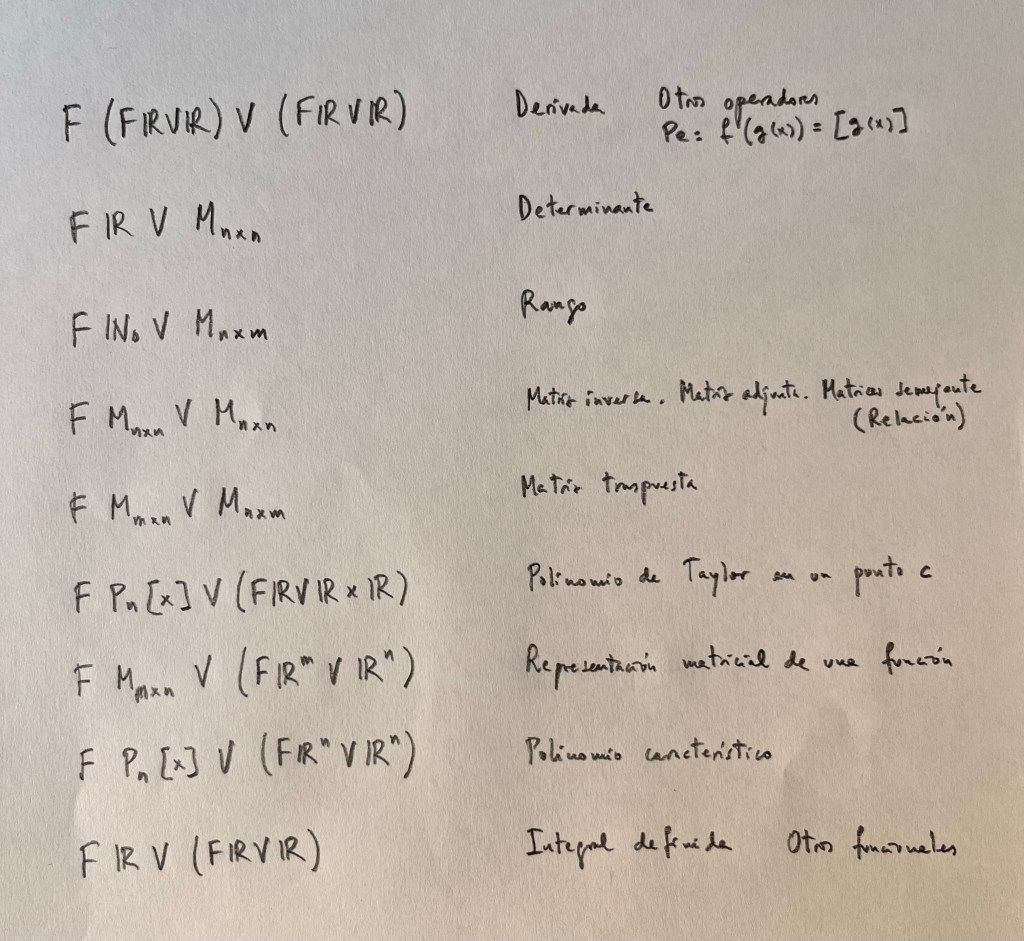 F (FIRVIR) V (FIRVIR) Derivada Otros operadores
Pe: f(g(x)) = [g(x)]
F IR V Mₙₓₙ Determinante
F INₒ V Mₙₓₘ Rango
F Mₙₓₙ V Mₙₓₙ Matriz inversa. Matriz adjunta. Matrices semejante
(Relación)
F Mₘₓₙ V Mₙₓₘ Matriz traspuesta
F Pₙ[x] V (FIRVIR x IR) Polinomio de Taylor en un punto c
F Mₘₓₙ V (FIRᵐ V IRⁿ) Representación matricial de una función
F Pₙ[x] V (FIRⁿ V IRⁿ) Polinomio característico
F IR V (FIRVIR) Integral definida Otros funcionales